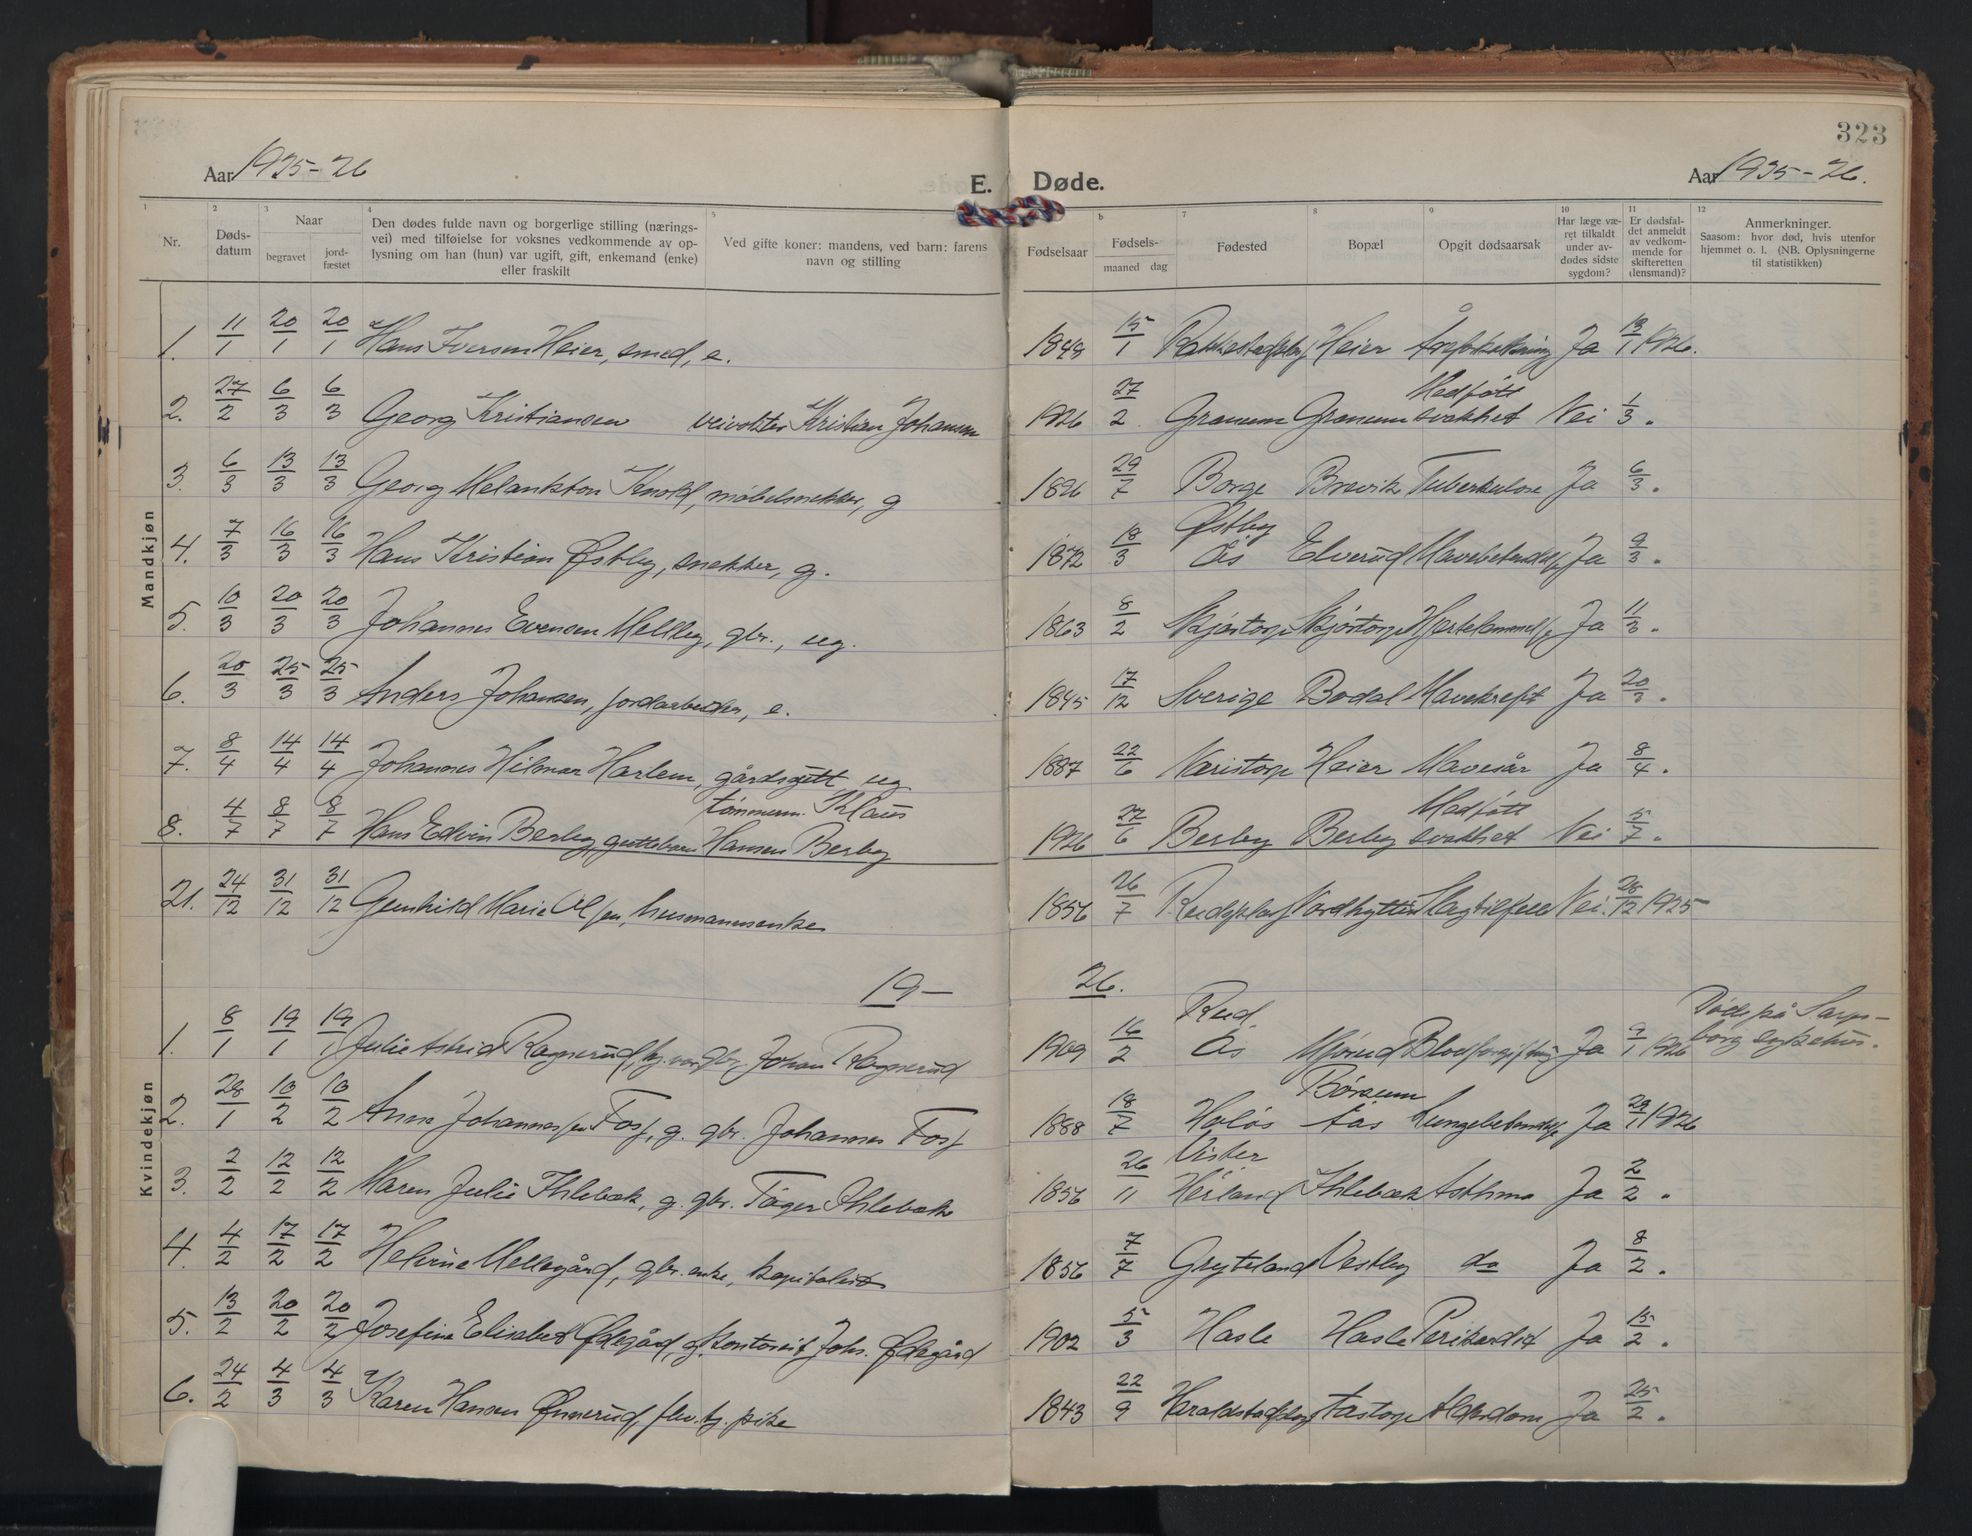 323
Aar 1925-26
E. Døde.
Aar 1925-26.
1 2 3 4 5 6 7 8 9 10 11 12
Nr.
Døds-
datum
Naar
begravet
jord-
fæstet
Den dødes fulde navn og borgerlige stilling (nærings-
vei) med tilføielse for voksnes vedkommende av op-
lysning om han (hun) var ugift, gift, enkemand (enke)
eller fraskilt
Ved gifte koner: mandens, ved barn: farens
navn og stilling
Fødselsaar
Fødsels-
maaned dag
Fødested
Bopæl
Opgit dødsaarsak
Har læge væ-
ret tilkaldt
under av-
dødes sidste
sygdom?
Er dødsfal-
det anmeldt
av vedkom-
mende for
skifteretten
(lensmand)?
Anmerkninger.
Saasom: hvor død, hvis utenfor
hjemmet o. l. (NB. Oplysningerne
til statistikken)
Mandkjøn
1. 11/1 20/1 20/1 Hans Iversen Heier, smed, e. 1848 15/1 Rakkestad Heier Åreforkalkning Ja 13/1 1926.
2. 27/2 6/3 6/3 Georg Kristiansen veivokter Kristian Johansen 1926 27/2 Granum Granum Medfött svakhet Nei 1/3 "
3. 6/3 13/3 13/3 Georg Melankton Knold, møbelsnekker, g 1896 29/7 Borge Brevik Tuberkulose Ja 6/3 "
4. 7/3 16/3 16/3 Hans Kristian Østby, snekker, g. 1872 18/3 Østby Ås Elverud Mavebetendelse Ja 9/3 "
5. 10/3 20/3 20/3 Johannes Evensen Melleby, gbr., ug. 1863 8/2 Skjørtorp Skjørtorp Hjertelammelse Ja 11/3 "
6. 20/3 25/3 25/3 Anders Johansen, jordarbeider, e. 1845 17/12 Sverige Bodal Mavekreft Ja 20/3 "
7. 8/4 14/4 14/4 Johannes Hilmar Harlem, gårdsgutt, ug 1887 22/6 Karistorp Heier Mavesår Ja 8/4 "
8. 4/7 8/7 8/7 Hans Edvin Berby, guttebarn tømmerm. Klaus Hansen Berby 1926 27/6 Berby Berby Medfött svakhet Nei 5/7 "
21. 24/12 31/12 31/12 Gunhild Marie Olsen, husmannsenke 1856 26/7 Nordhytten Slagtilfelle Nei 28/12 1925
19- 26.
Kvindekjøn
1. 8/1 19/1 19/1 Julie Astrid Ragnerud, gbr. Johan Ragnerud 1909 16/2 Rud Ås Mjørud Blodforgiftning Ja 9/1 1926 Døde på Sarps-
borg sykehus.
2. 28/1 10/2 10/2 Anna Johannessen Foss, g. gbr. Johannes Foss 1888 18/7 Høløs Børsum Aas Lungebetendelse Ja 29/1 1926
3. 2/2 12/2 12/2 Maren Julie Ihlebæk, g. gbr. Tøger Ihlebæk 1856 26/11 Vister Hørland Ihlebæk Asthma Ja 2/2 "
4. 4/2 17/2 17/2 Helvine Mellegård, gbr. enke, kapitalist 1856 7/7 Grøteland Vestby do Ja 8/2 "
5. 13/2 20/2 20/2 Josefine Elisabet Ødegård, g. kontorist Johs. Ødegård 1902 5/3 Hasle Hasle Perikardit Ja 15/2 "
6. 24/2 4/3 4/3 Karen Hansen Ønnerud, fhv. tj. pike 1843 22/9 Haraldstad Aastorp Alderdom Ja 25/2 "